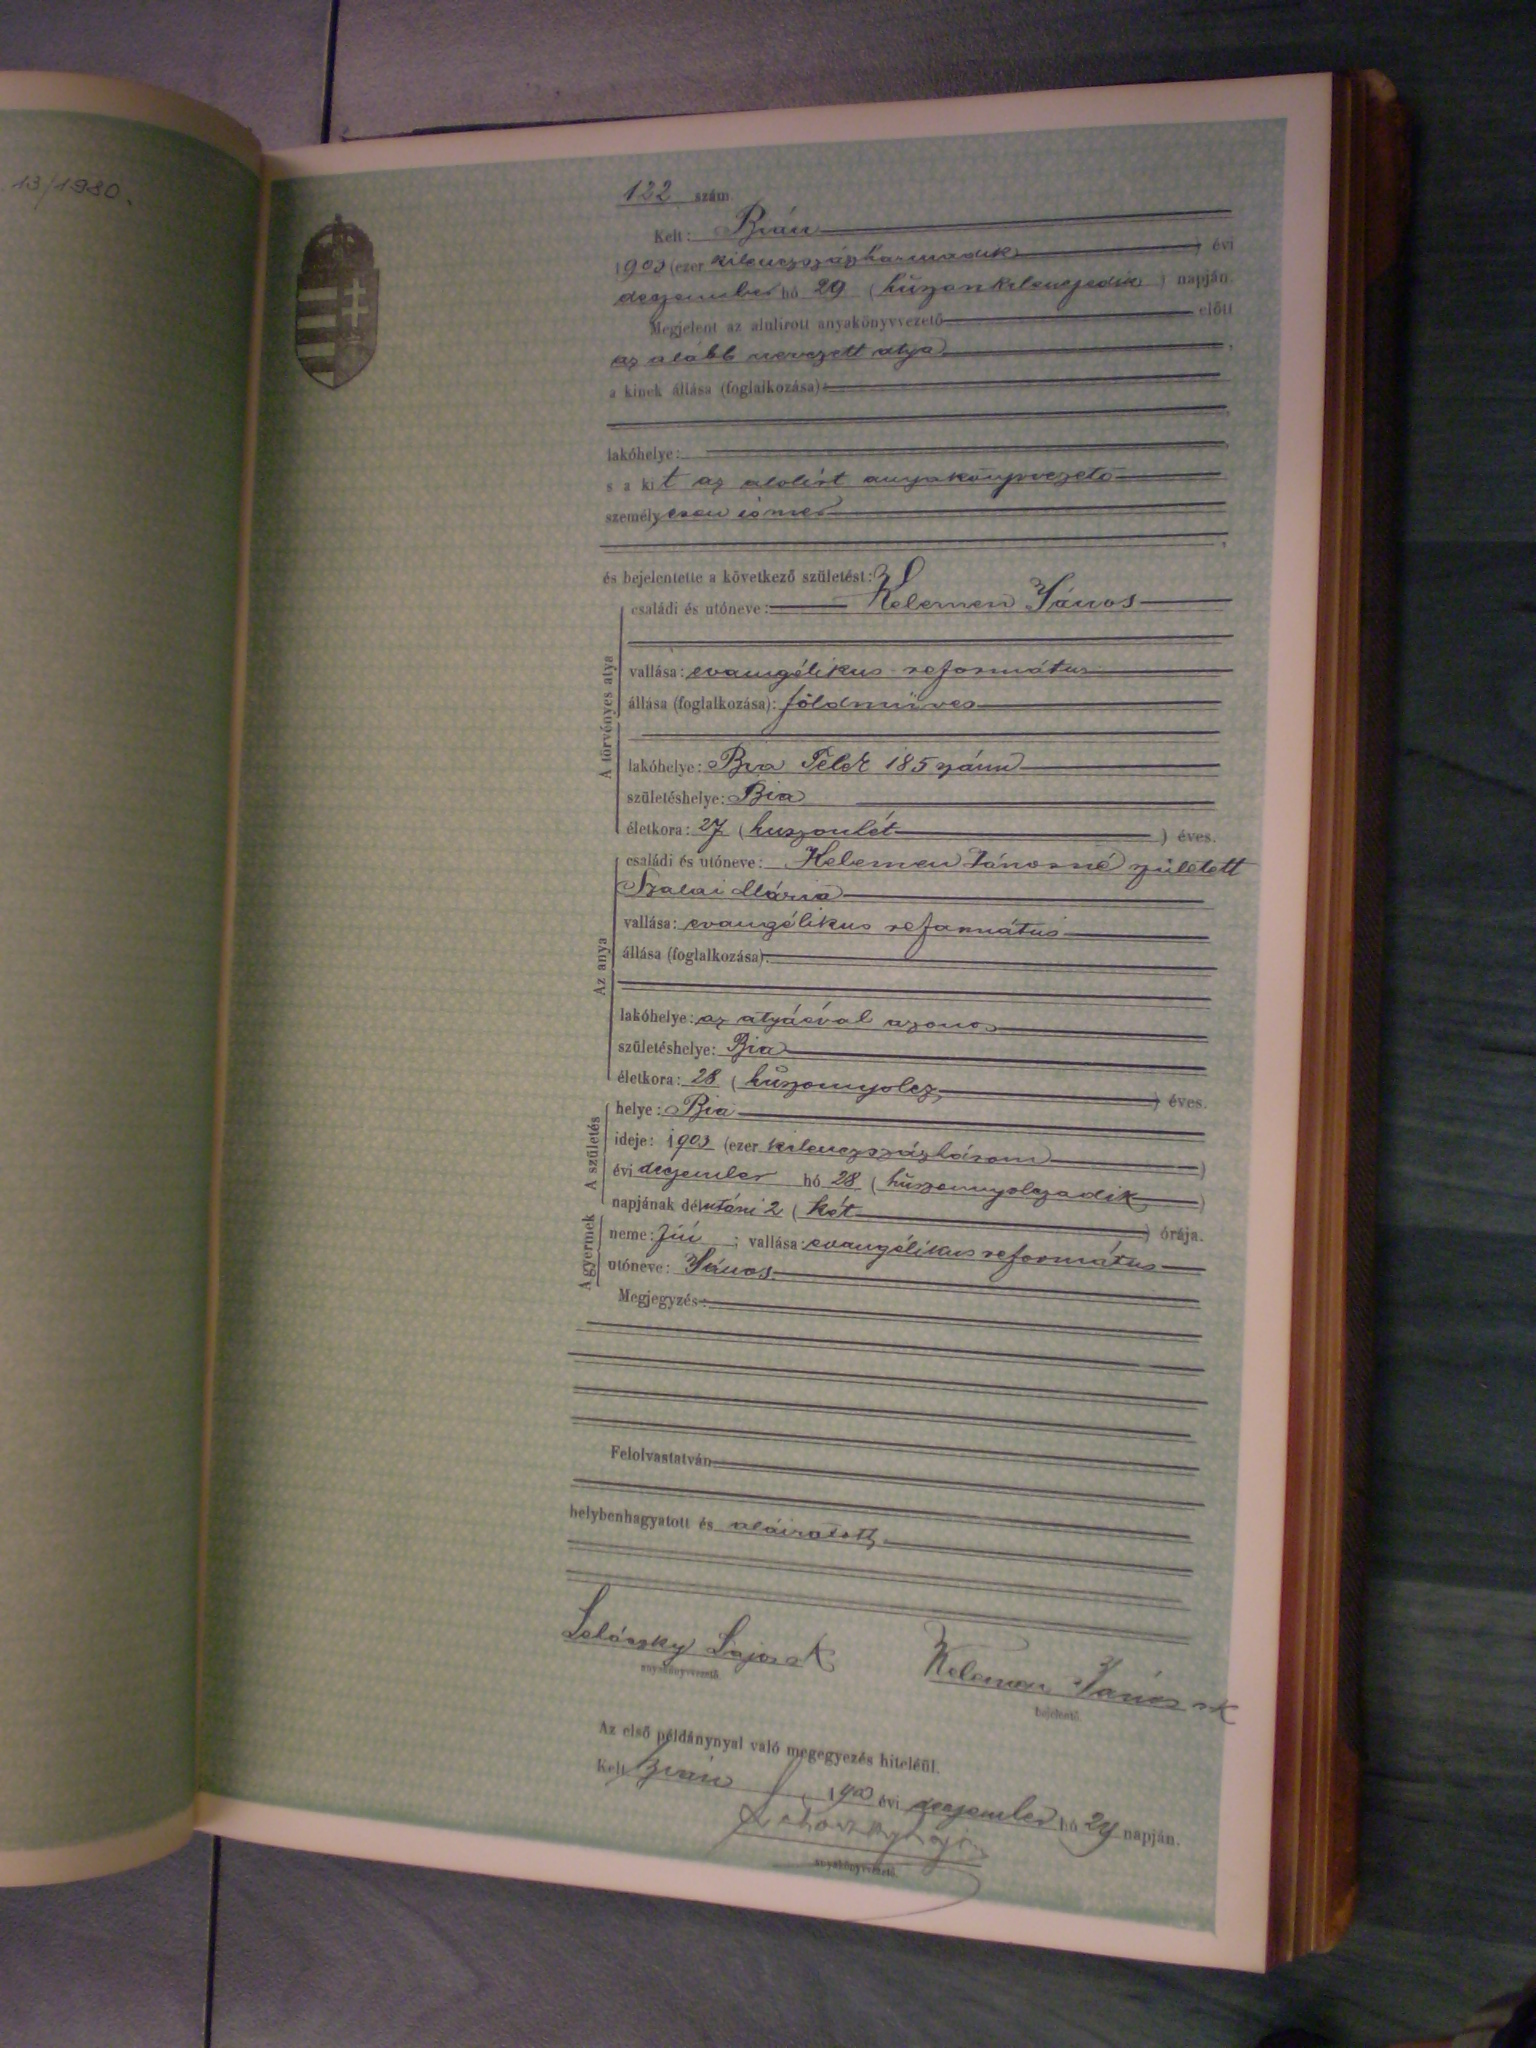 13/1980.
122 szám
Kelt: Bián
1903 (ezer kilenczszázharmadik) évi
deczember hó 29 (huszonkilenczedik) napján.
Megjelent az alulirott anyakönyvvezető előtt
az alább nevezett atya
a kinek állása (foglalkozása):
lakóhelye:
s a kit az alolirt anyakönyvvezető
személyesen ismer
és bejelentette a következő születést:
A törvényes atya
családi és utóneve: Kelemen János
vallása: evangélikus református
állása (foglalkozása): földmüves
lakóhelye: Bia Telek 185 szám
születéshelye: Bia
életkora: 27 (huszonhét) éves.
Az anya
családi és utóneve: Kelemen Jánosné született
Szalai Mária
vallása: evangélikus református
állása (foglalkozása):
lakóhelye: az atyáéval azonos
születéshelye: Bia
életkora: 28 (huszonnyolcz) éves.
A születés
helye: Bia
ideje: 1903 (ezer kilenczszázhárom)
évi deczember hó 28 (huszonnyolczadik)
napjának délutáni 2 (két) órája.
A gyermek
neme: fiú; vallása: evangélikus református
utóneve: János
Megjegyzés:
Felolvastatván
helybenhagyatott és aláiratott
Lajos sk Kelemen János sk
anyakönyvvezető. bejelentő.
Az első példánynyal való megegyezés hiteléül.
Kelt Bián 1903 évi deczember hó 29 napján.
anyakönyvvezető.